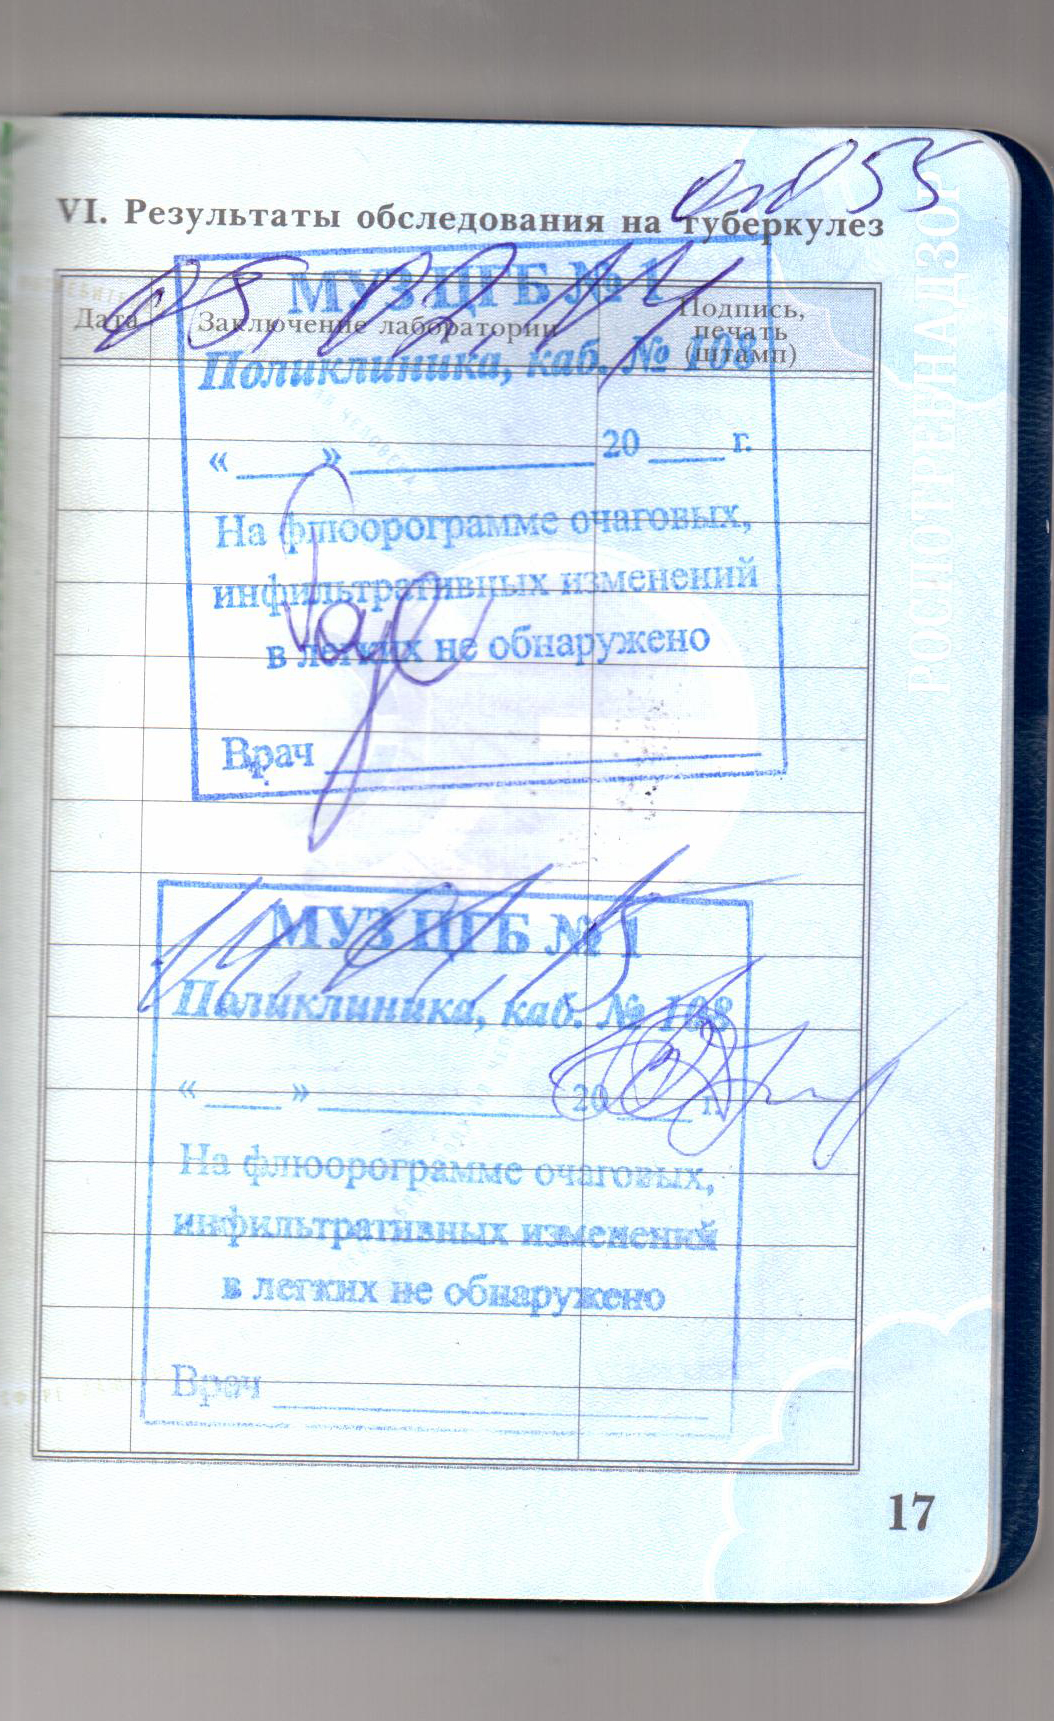 VI. Результаты обследования на туберкулез
Дата
Заключение лаборатории
Подпись,
печать
(штамп)
МУЗ ЦГБ № 1
Поликлиника, каб. № 108
« » 20 г.
На флюорограмме очаговых,
инфильтративных изменений
в легких не обнаружено
Врач
МУЗ ЦГБ № 1
Поликлиника, каб. № 108
« » 20 г.
На флюорограмме очаговых,
инфильтративных изменений
в легких не обнаружено
Врач
РОСПОТРЕБНАДЗОР
17